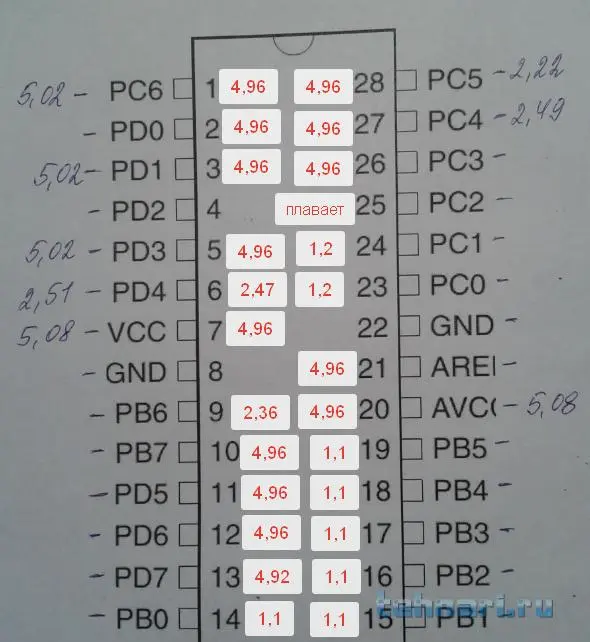 5,02 - PC6 1 4,96 4,96 28 PC5 - 2,22
- PD0 2 4,96 4,96 27 PC4 - 2,49
5,02 - PD1 3 4,96 4,96 26 PC3 -
- PD2 4 плавает 25 PC2 -
5,02 - PD3 5 4,96 1,2 24 PC1 -
2,51 - PD4 6 2,47 1,2 23 PC0 -
5,08 - VCC 7 4,96 22 GND -
- GND 8 4,96 21 AREI -
- PB6 9 2,36 4,96 20 AVC( - 5,08
- PB7 10 4,96 1,1 19 PB5 -
- PD5 11 4,96 1,1 18 PB4 -
- PD6 12 4,96 1,1 17 PB3 -
- PD7 13 4,92 1,1 16 PB2 -
- PB0 14 1,1 1,1 15 PB1 -
tehnari.ru